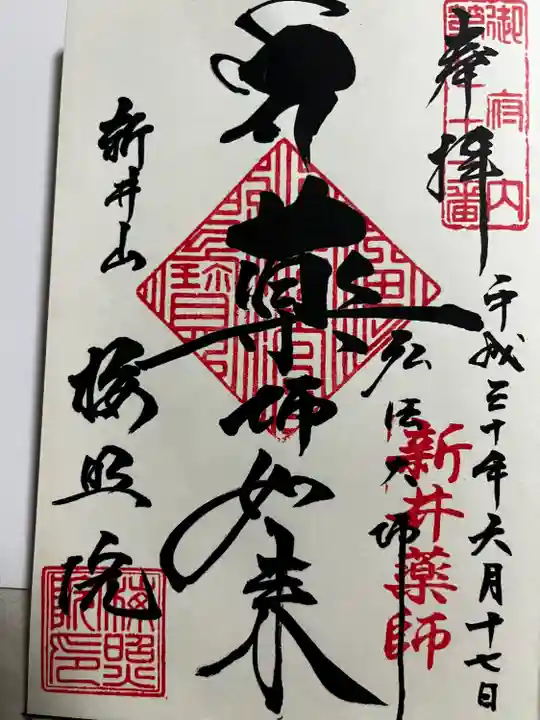 奉拝
平成三十年六月十七日
御府内
新井薬師
弘法大師
薬師如来
新井山
梅照院
梅照院印